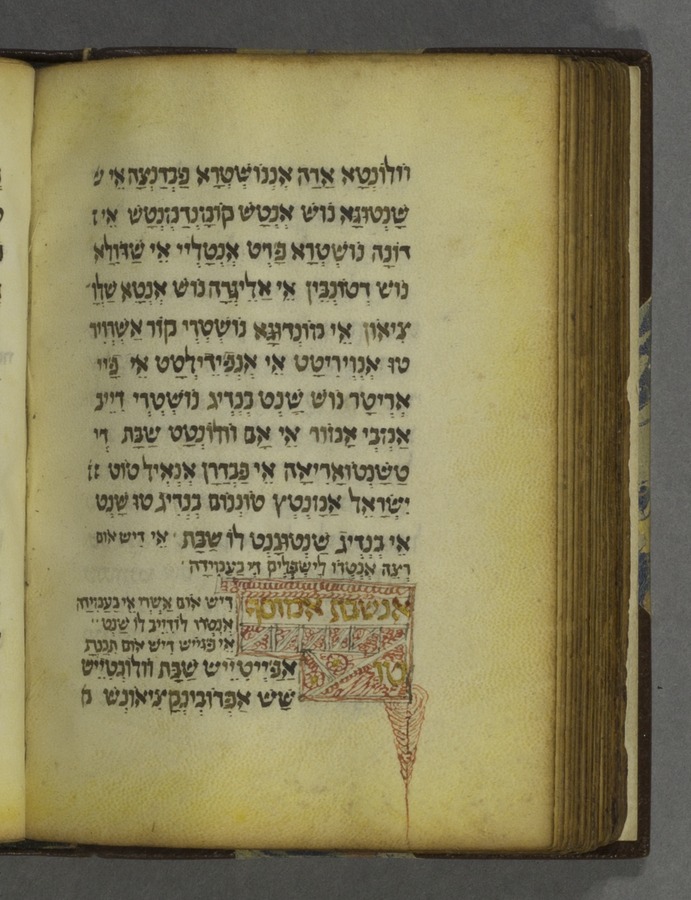 וולונטא אדה אננושטרא פבדנצה אי ש
שנטוגא נוש אנטש קומנדמנטש אי ז
דונה נושטרא פרט אנטליי אי שדולא
נוש דטונבין אי אליגרה נוש אנטא שלו
ציאון אי מונדוגא נושטרי קור אשרויר
טו אנוויריטט אי אנפידילטט אי פיי
אריטר נוש שנט בנדיג נושטרי דייב
אנזבי אמור אי אם וולונטט שבת די
טשנטואריאה אי פבדרן אנאיל טוט
ישראל אמונטץ טוננום בנדיג טו שנט
אי בנדיג שנטוגנט לו שבת אי דיש אום
רצה אנטרו לישפלים די בעמידה
אנשבת אמוסף
דיש אום אשרי אי בעמידה
אנטרו לודייב לו שנט
אי פנייש דיש אום תכנת
טו אפייטייש שבת וולונטייש
שש אפרובינקציאונש